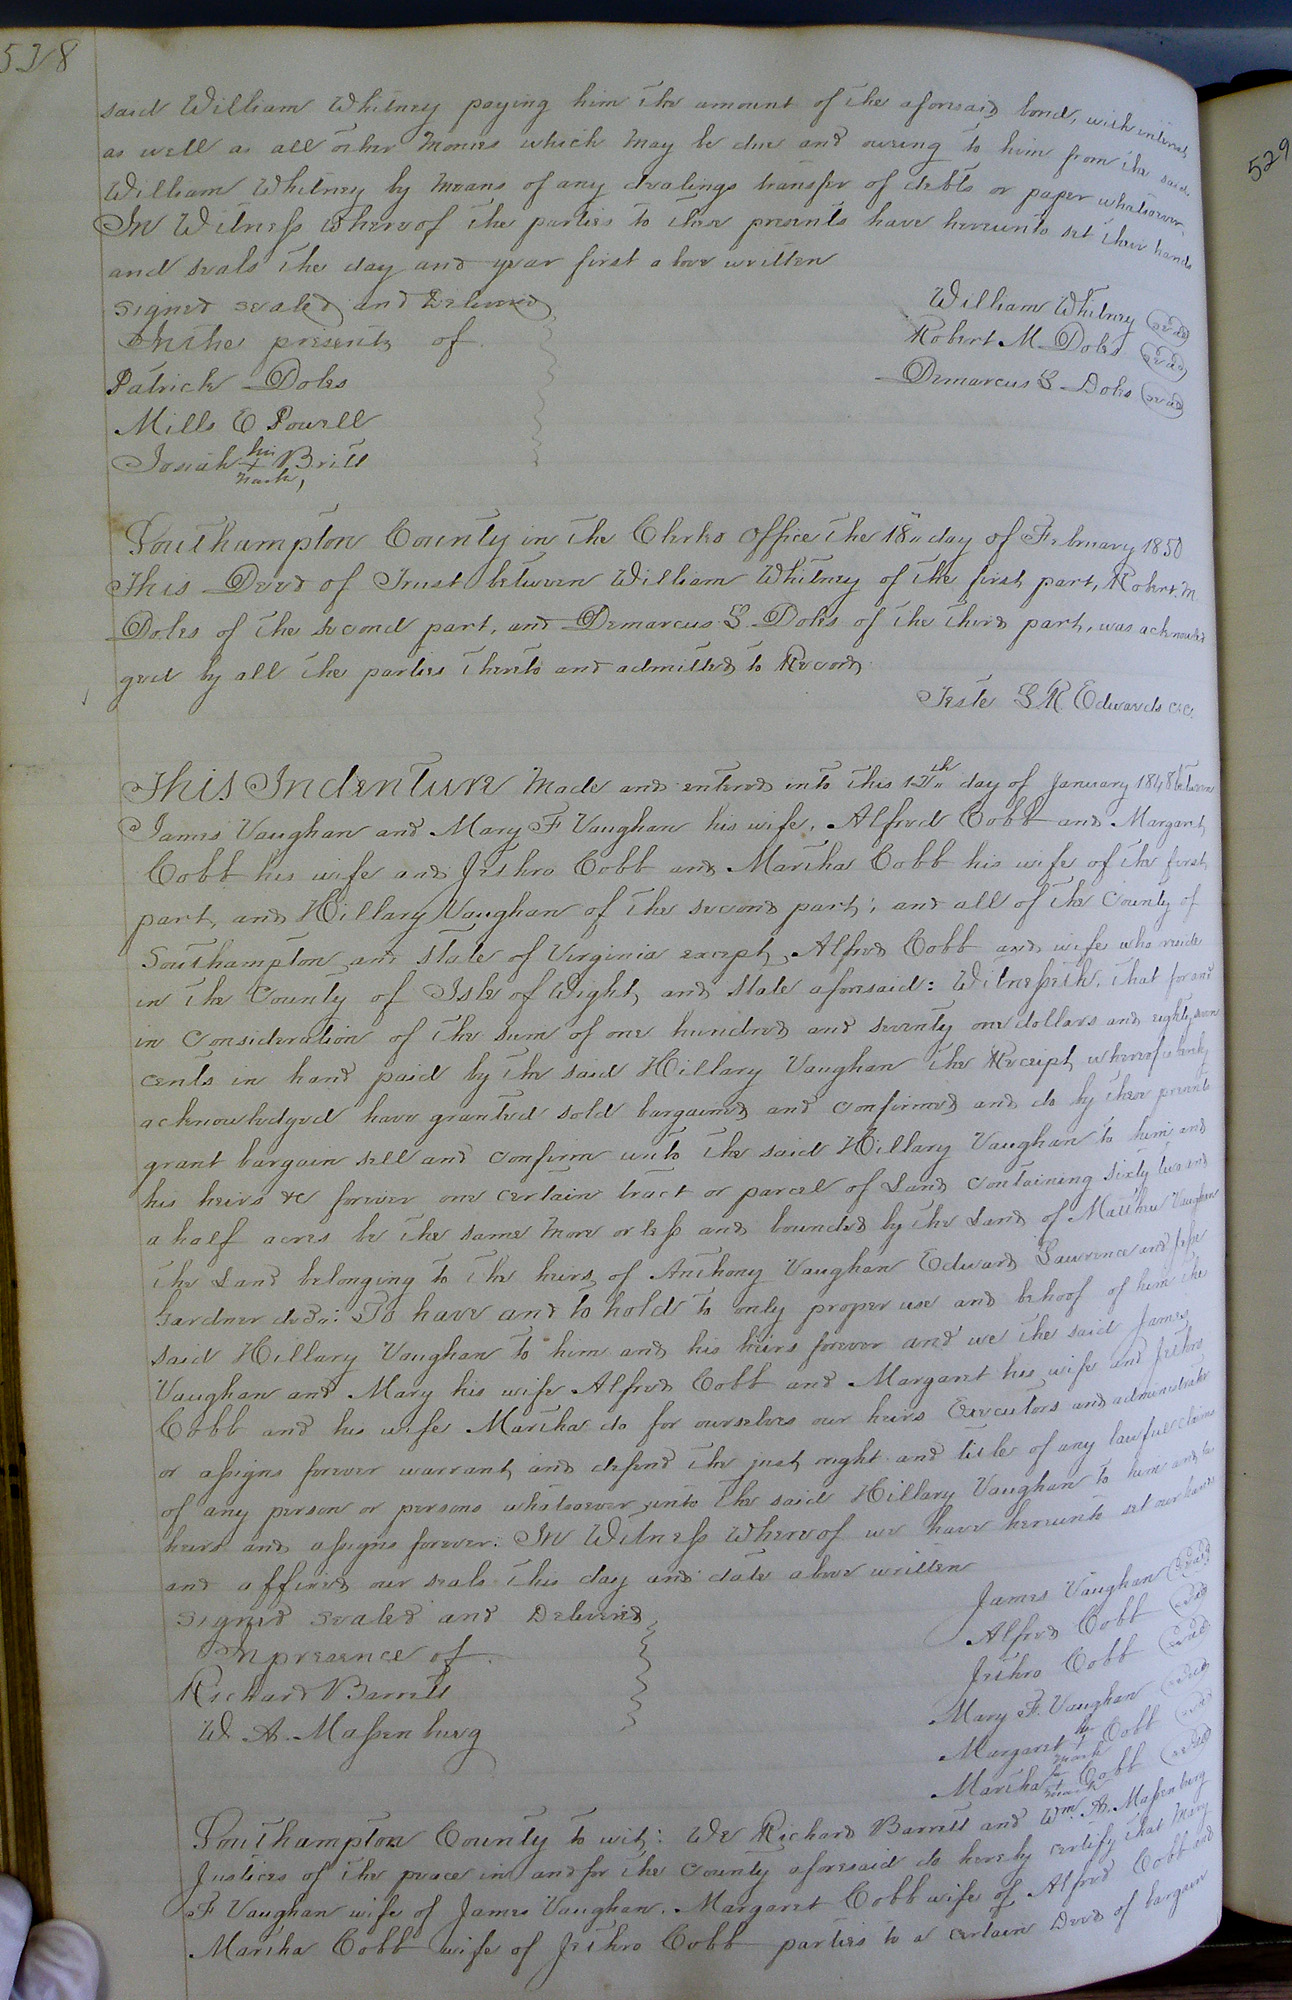 528
529
said William Whitney paying him the amount of the aforesaid bond, with interest
as well as all other monies which may be due and owing to him from the said
William Whitney by means of any dealings transfer of debts or paper whatsoever.
In Witness whereof the parties to these presents have hereunto set their hands
and seals the day and year first above written
signed sealed and Delivered
William Whitney (seal)
In the presents of
Robert M Doles (seal)
Patrick Doles
Demarcus S Doles (seal)
Mills E Powell
Josiah his + mark, Britt
Southampton County in the Clerks office the 18" day of February 1850
This Deed of Trust between William Whitney of the first part, Robert. M
Doles of the second part, and Demarcus S. Doles of the third part, was acknowled
ged by all the parties thereto and admitted to Record.
Teste L R. Edwards c.c.
This Indenture Made and entered into this 12th day of January 1848 between
James Vaughan and Mary F Vaughan his wife, Alfred Cobb and Margaret
Cobb his wife and Jethro Cobb and Martha Cobb his wife of the first
part, and Hillary Vaughan of the second part; and all of the County of
Southampton and State of Virginia except Alfred Cobb and wife who reside
in the County of Isle of Wight, and State aforesaid: Witnesseth, that for and
in consideration of the sum of one hundred and seventy one dollars and eighty seven
cents in hand paid by the said Hillary Vaughan the Receipt whereof is hereby
acknowledged have granted sold bargained and confirmed and do by these presents
grant bargain sell and confirm unto the said Hillary Vaughan to him and
his heirs &c forever one certain tract or parcel of Land containing sixty two and
a half acres be the same more or less and bounded by the Land of Matthew Vaughan
the Land belonging to the heirs of Anthony Vaughan Edward Lawrence and Jesse
Gardner decd.: To have and to hold to only proper use and behoof of him the
said Hillary Vaughan to him and his heirs forever and we the said James
Vaughan and Mary his wife Alfred Cobb and Margaret his wife and Jethro
Cobb and his wife Martha do for ourselves our heirs Executors and administrators
or assigns forever warrant and defend the just right and title of any lawful claims
of any person or persons whatsoever unto the said Hillary Vaughan to him and his
heirs and assigns forever: In Witness Whereof we have hereunto set our hands
and affixed our seals this day and date above written
signed sealed and Delivered
James Vaughan (seal)
In presence of
Alfred Cobb (seal)
Richard Barrett
Jethro Cobb (seal)
W. A. Massenburg
Mary F. Vaughan (seal)
Margaret her + mark Cobb (seal)
Martha her + mark Cobb (seal)
Southampton County to wit: We Richard Barrett and Wm. A. Massenburg
Justices of the peace in and for the County aforesaid do hereby certify that Mary
F Vaughan wife of James Vaughan, Margaret Cobb wife of Alfred Cobb and
Martha Cobb wife of Jethro Cobb parties to a certain Deed of bargain